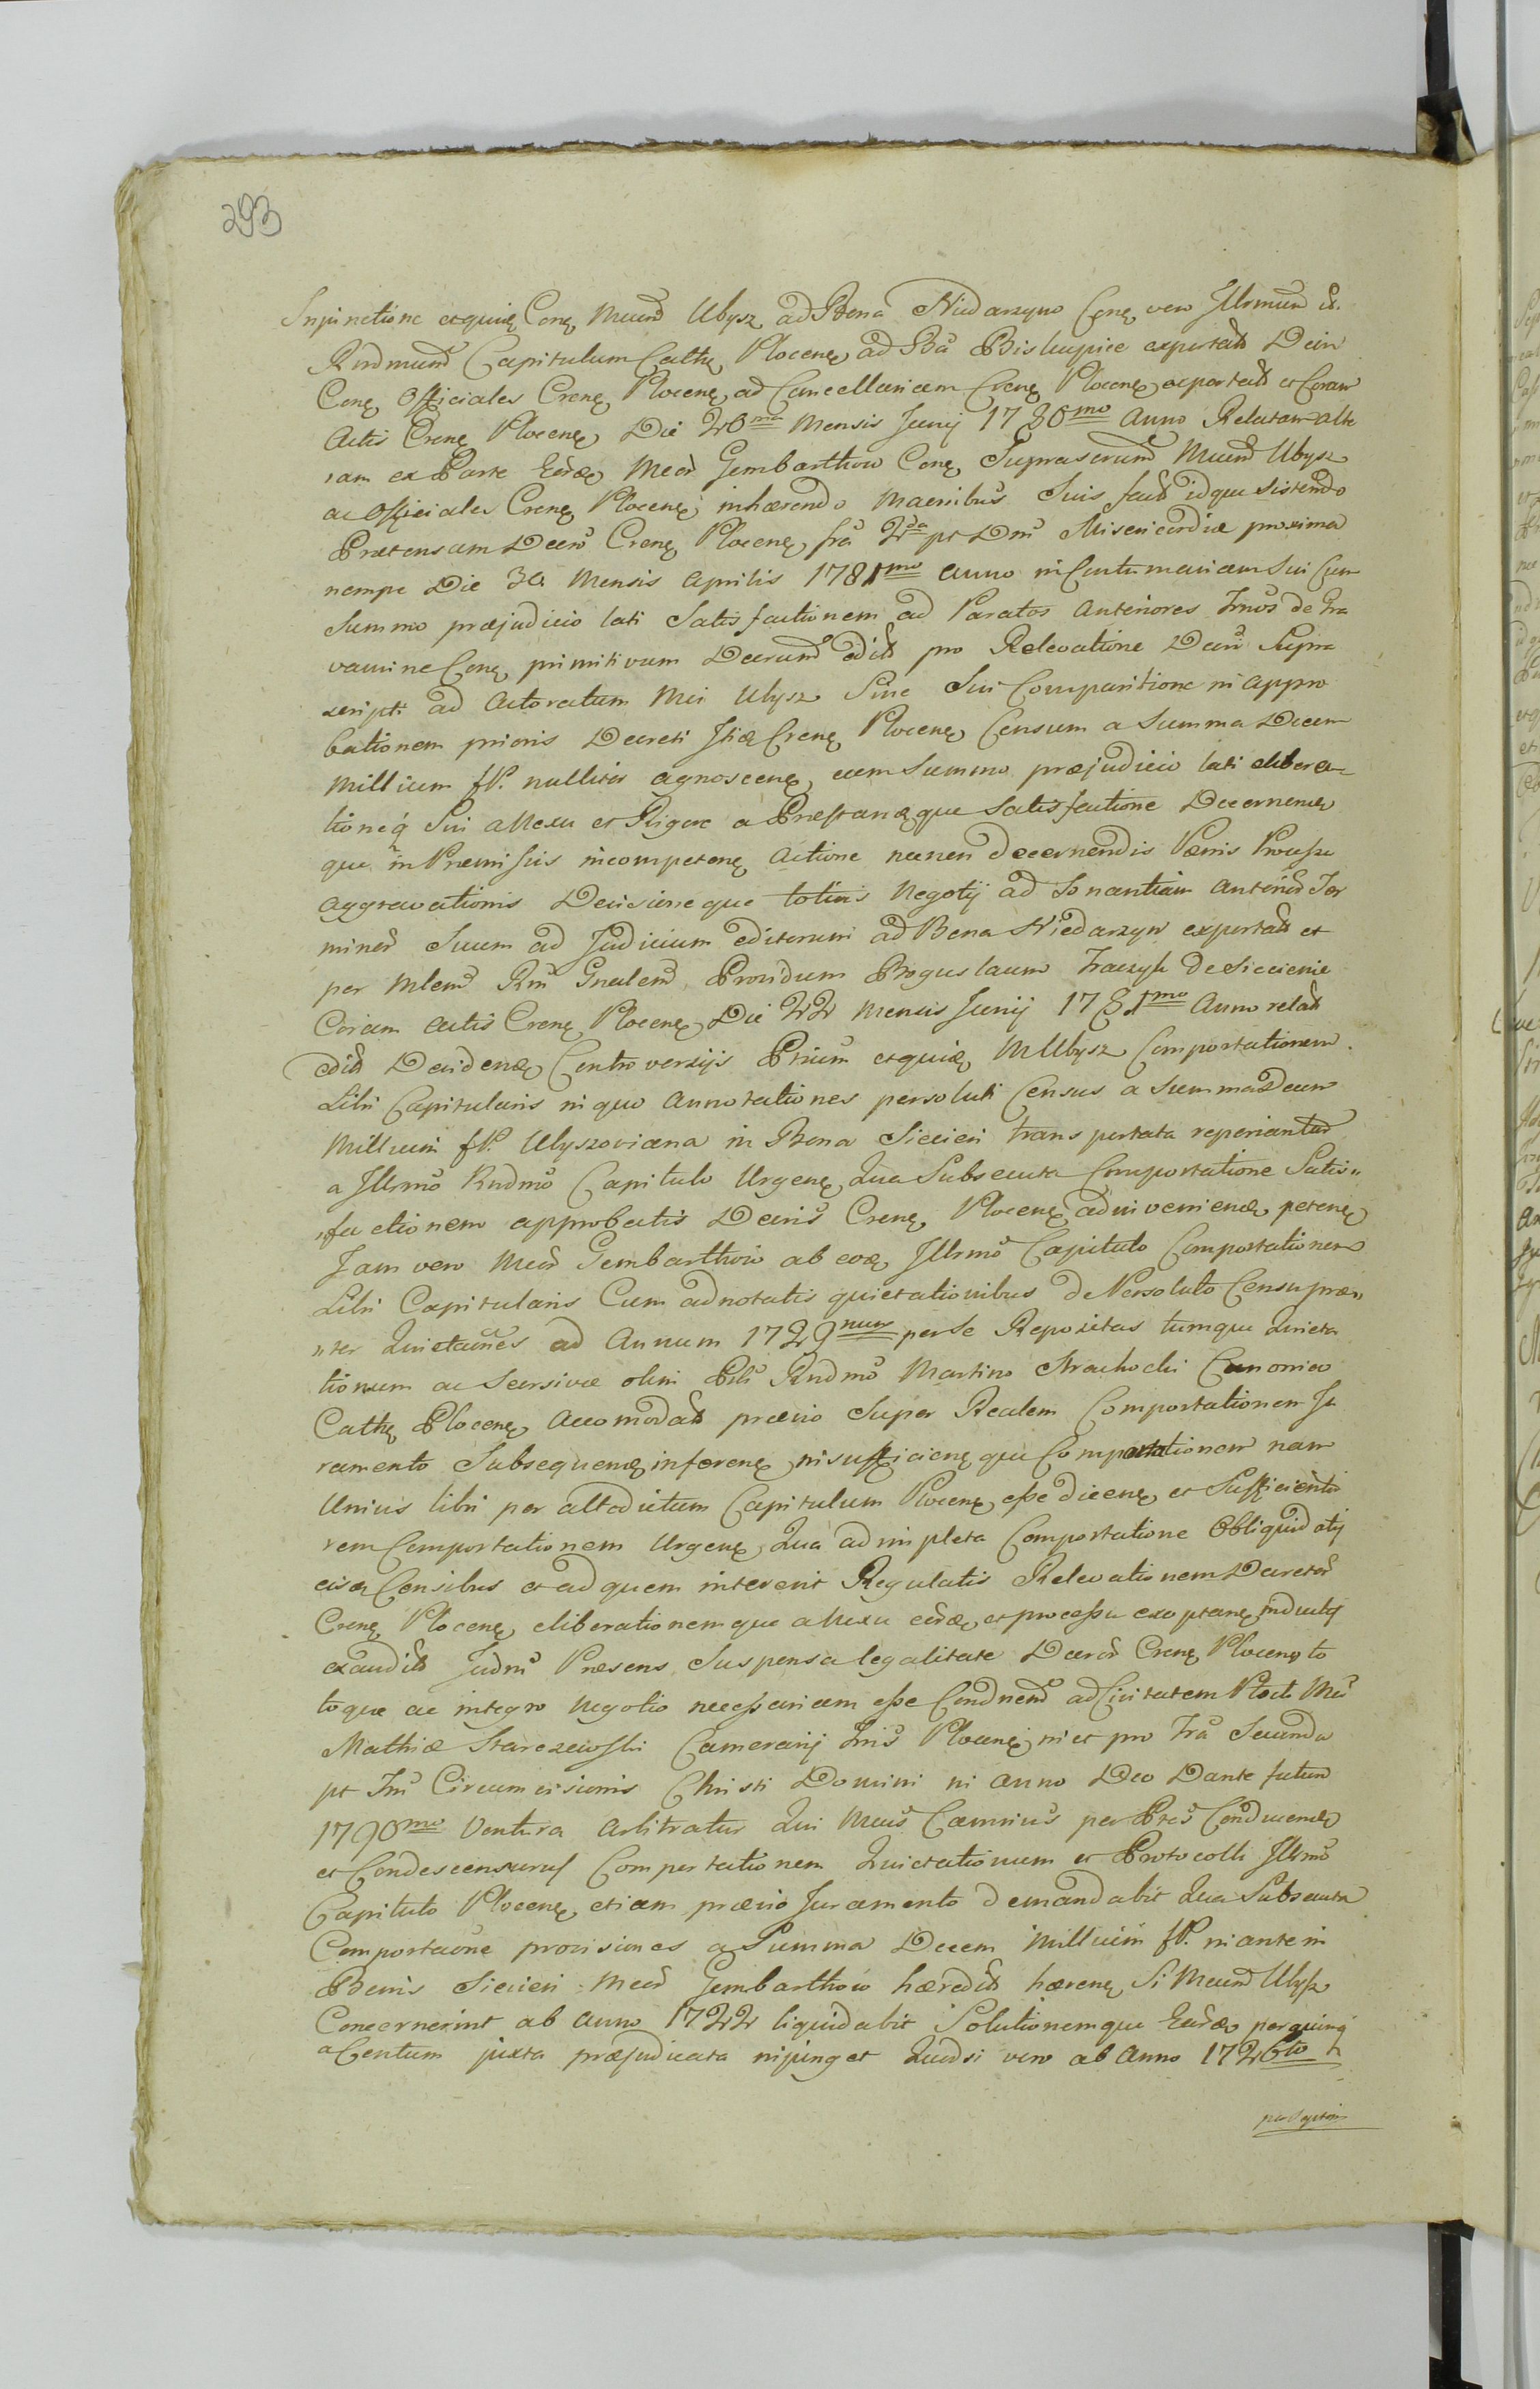 293
Injunctione atquię Conę Mcum̃d Ulysz ad Bona Niedarzyno Conę vero Illrmum̃ &
Rndmum̃ Capitulum Cathę Plocenę ad Bã Biskupice exportat̃ Dein
Conę Officiales Crenę Plocenę ad Cancellariam Crenę Plocenę exportat̃ et Coram
Actis Crenę Plocenę Die 20ma Mensis Junij 1780mo Anno Relatam alte
ram ex Parte Eor̃dę Mcor̃ Gembarthow Conę Suprascrum̃ Mcum̃ Ulysz
ac Officiales Crenę Plocenę inhærendo Manibus Suis fact̃ idque Sistendo
Prætensam Decr̃o Crenę Plocenę frã 2da pt Dnĩ Misericordiæ proxima
nempe Die 30 Mensis Aprilis 1781mo Anno in Contumaciam Sui Cum
Summo præjudicio lati Satisfactionem ad Paratos Anteriores Trnos de Gra
vamine Conę primitivum Decrum̃ edit̃ pro Relevatione Decr̃i Supra
scripti ad Actoratum Mci Ulysz Sine Sui Comparitione in Appro
bationem prioris Decreti Jtiæ Crenę Plocenę Censum a Summa Decem
Millium fP. nulliter agnoscenę, cum Summo præjudicio lati elibera-
tioneq̃ Sui a Nexu et Rigore a Præstandęque Satisfactione Decernendę
que in Præmissis incompetenę Actione necnon decernendis Pænis Processu
Aggravationis Decisioneque totius Negotij ad Sonantiam Anterior̃ Ter
minor̃ Suum ad Judicium editorum ad Bona Niedarzyn exportat̃ et
per Mlem̃ Rnĩ Gnalem̃ Providum Boguslaum Traczyk de Siecienie
Coram Actis Crenę Plocenę Die 22 Mensis Junij 1781mo Anno relat̃
edit̃ Decidendę Controversijs Ptium̃ atquię M Ulysz Comportationem
Libri Capitularis in quo Annotationes persoluti Census a Summa Decem
Millium fP. Ulyszoviana in Bona Siecien transportata reperiantur̃
a Illrmo Rndmo Capitulo Urgenę, Qua Subsecuta Comportatione Satis„
„factionem approbatis Decris̃ Crenę Plocenę adinveniendę petenę
Jam vero Mcor̃ Gembarthow ab eodę Illrmo Capitulo Comportationem
Libri Capitularis Cum adnotatis quietationibus de Persoluto Censu præ„
„ter Quietaões ad Annum 1729num per Se Repositas tumque Quieta
tionum ac Scersivæ olim Plũ Rndmo Martino Strachocki Canonico
Cathę Plocenę Accomodat̃ prævio Super Realem Comportationem Ju
ramento Subsequendę inferenę, insufficienę que Comportationem nam
Unius libri per altedictum Capitulum Plocenę esse dicenę et Sufficientio
rem Comportationem Urgenę, Qua adimpleta Comportatione Obliquidatij
eisdę Censibus et ad quem intererit Regulatis Relevationem Decretor̃
Crenę Plocenę eliberationemque a Nexu eor̃dę et processu exoptanę inductij
exaudit̃ Judm̃ Præsens Suspensa legalitate Decror̃ Crenę Plocenę to
toque ac integro Negotio necessariam esse Condnem̃ ad Civitatem Plock Mcĩ
Mathiæ Starczewski Camerarij Tris̃ Plocenę in et pro Trã Secunda
pt Fm̃ Circumcisionis Christi Domini in Anno Deo Dante futuro
1790mo Ventura Arbitratur Qui Mcus̃ Camrius̃ per Ptes̃ Conducendę
et Condescensurus Comportationem Quietationum et Protocolli Illrmo
Capitulo Plocenę etiam prævio Juramento demandabit Qua Subsecuta
Comportaõne provisiones a Summa Decem Millium fP. in ante in
Bonis Siecien Mcor̃ Gembarthow hæredit̃ hærenę Si Mcum̃ Ulysz
Concernerint ab Anno 1722 liquidabit Solutionemque Ear̃dę per quinq̃
a Centum juxta præjudicata injunget Quodsi vero ab Anno 1726to